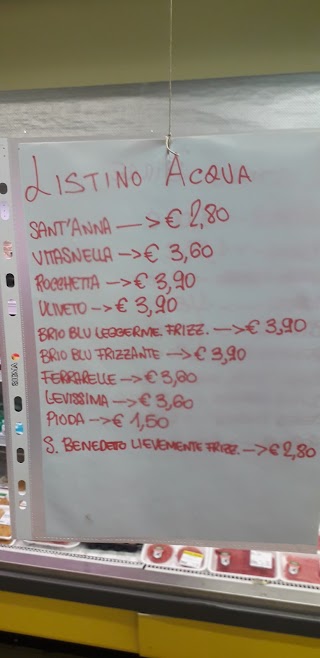 LISTINO ACQUA
SANT'ANNA —> € 2,80
VITASNELLA —> € 3,60
ROCCHETTA —> € 3,90
ULIVETO —> € 3,90
BRIO BLU LEGGERME. FRIZZ. —> € 3,90
BRIO BLU FRIZZANTE —> € 3,90
FERRARELLE —> € 3,60
LEVISSIMA —> € 3,60
PIODA —> € 1,50
S. BENEDETO LIEVEMENTE FRIZZ. —> € 2,80